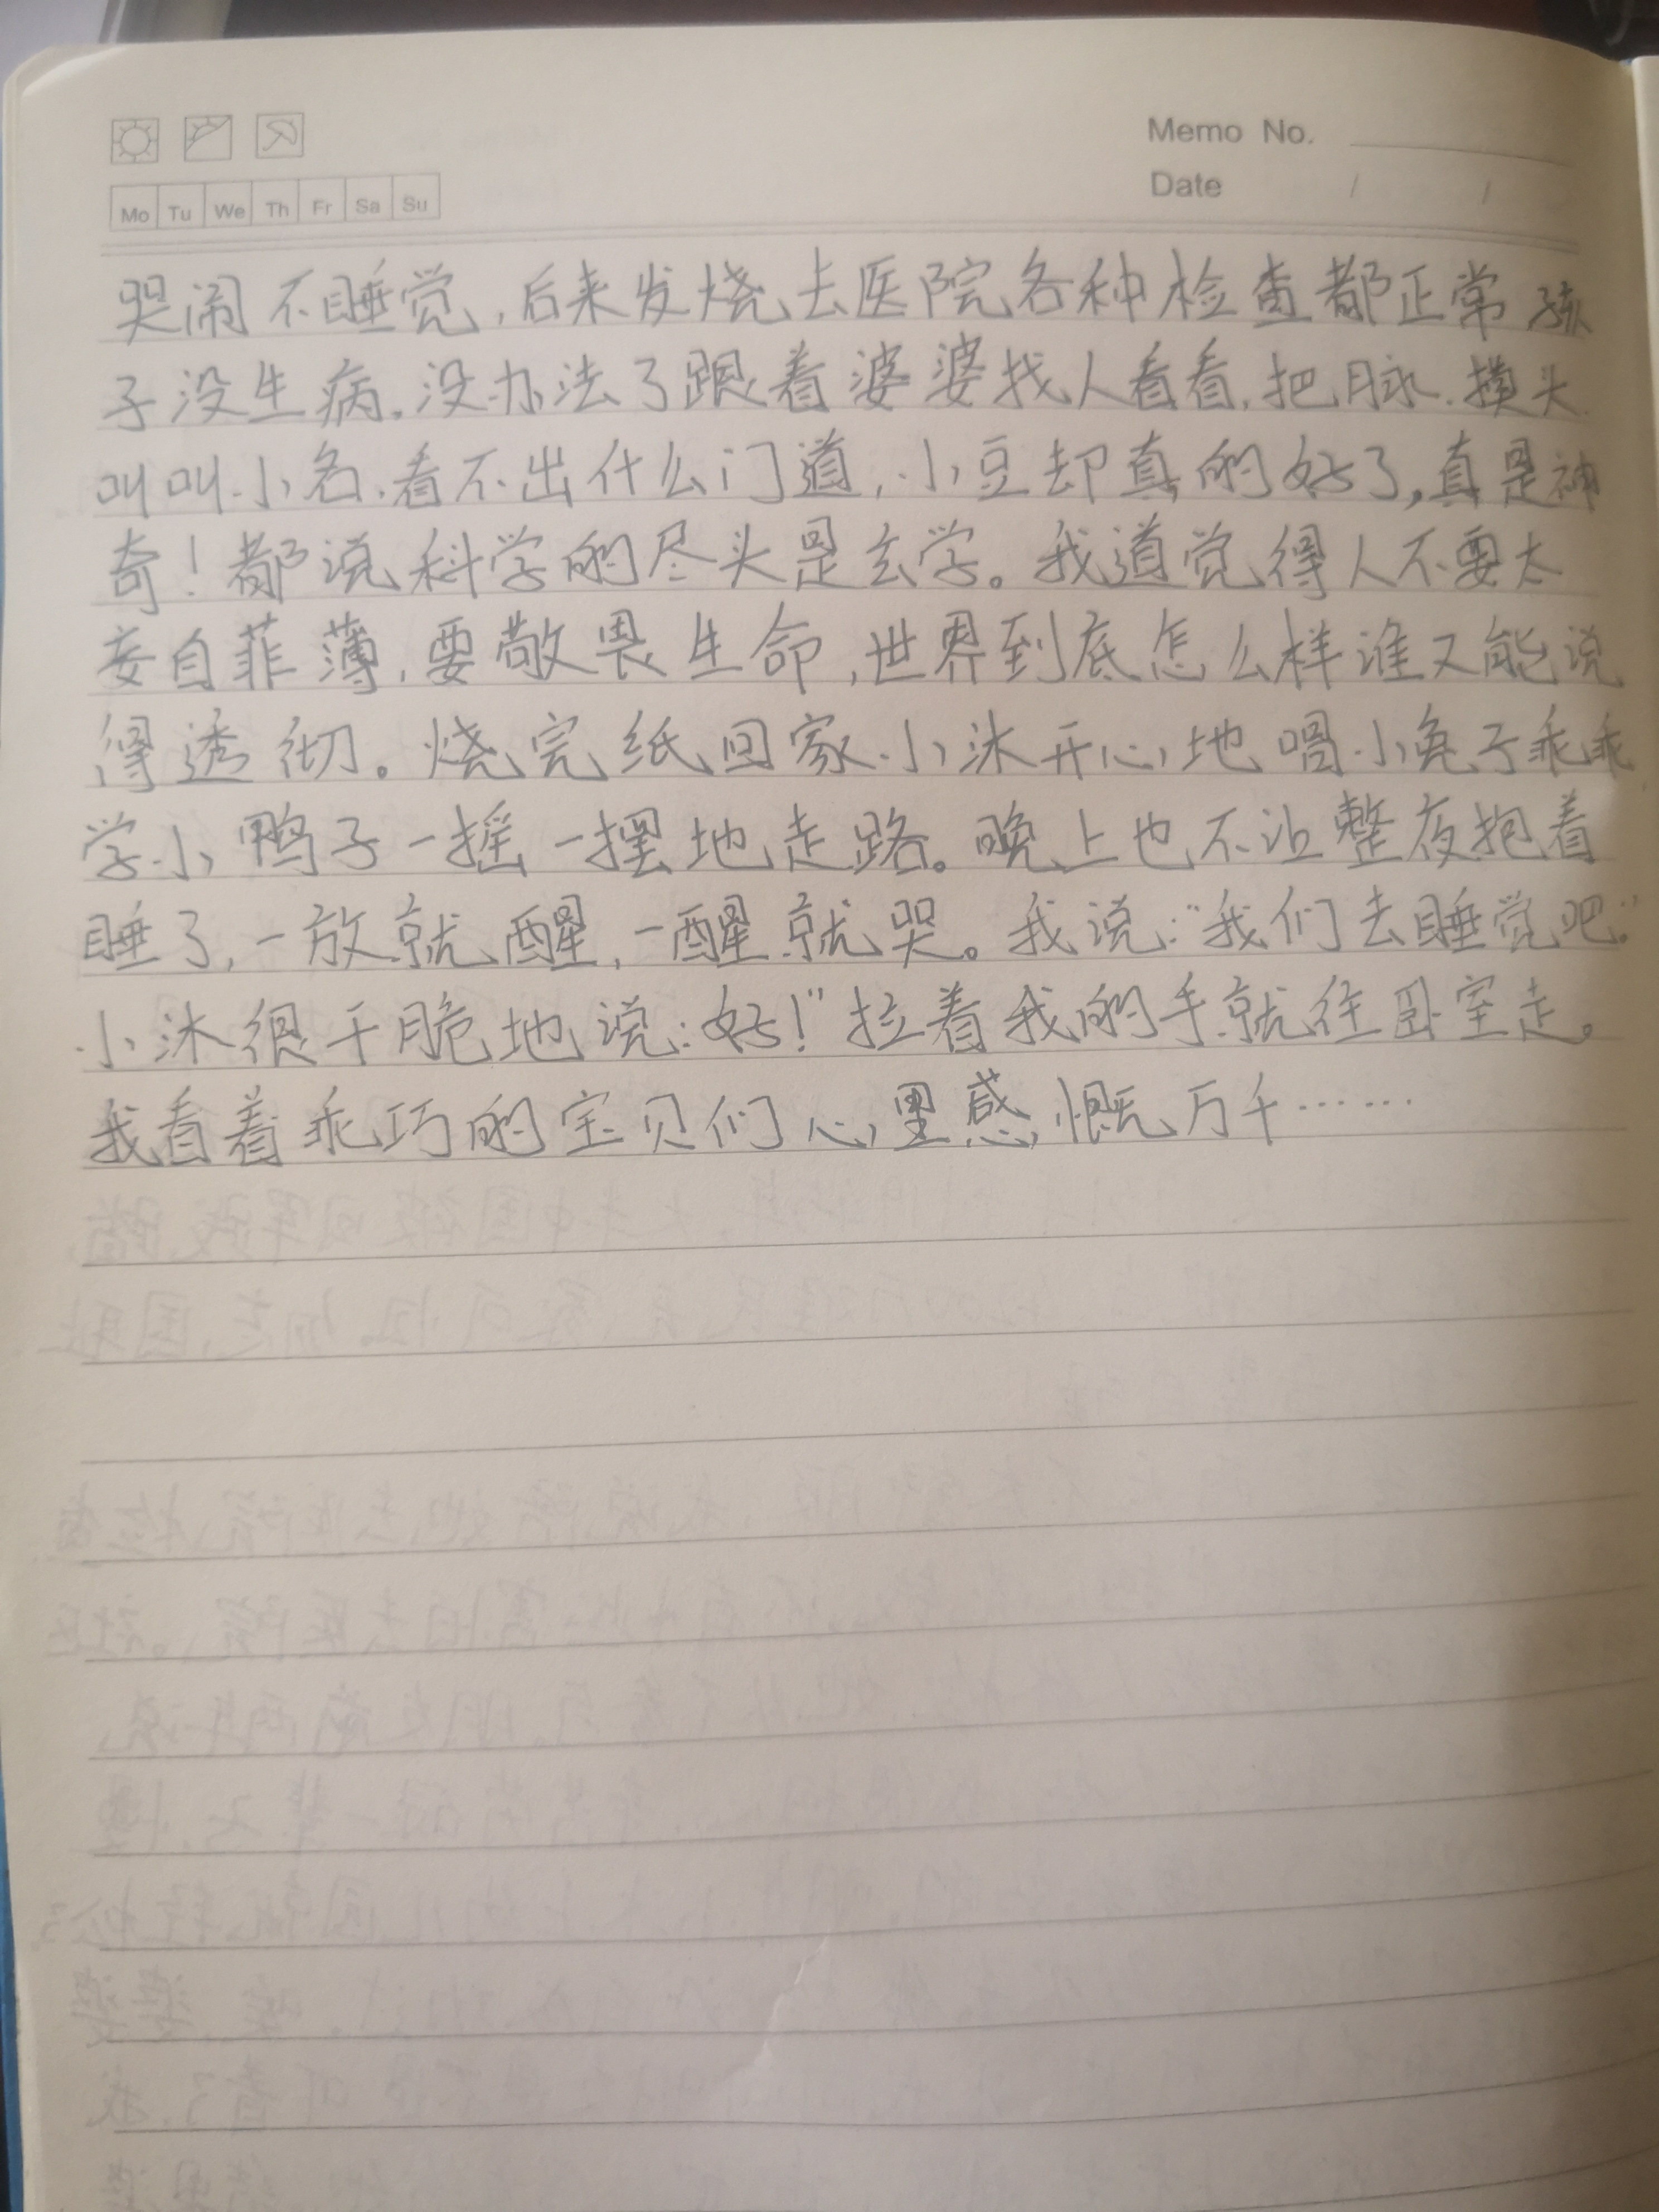 Memo No.
Date / /
Mo Tu We Th Fr Sa Su
哭闹不睡觉,后来发烧去医院各种检查都正常孩
子没生病。没办法了跟着婆婆找人看看,把脉.摸头
叫叫小名.看不出什么门道,小豆却真的好了,真是神
奇!都说科学的尽头是玄学。我道觉得人不要太
妄自菲薄,要敬畏生命,世界到底怎么样谁又能说
得透彻。烧完纸回家小沐开心地唱小兔子乖乖
学小鸭子一摇一摆地走路。晚上也不让整夜抱着
睡了,一放就醒,一醒就哭。我说:“我们去睡觉吧.”
小沐很干脆地说:好!”拉着我的手就往卧室走。
我看着乖巧的宝贝们心里感慨万千……